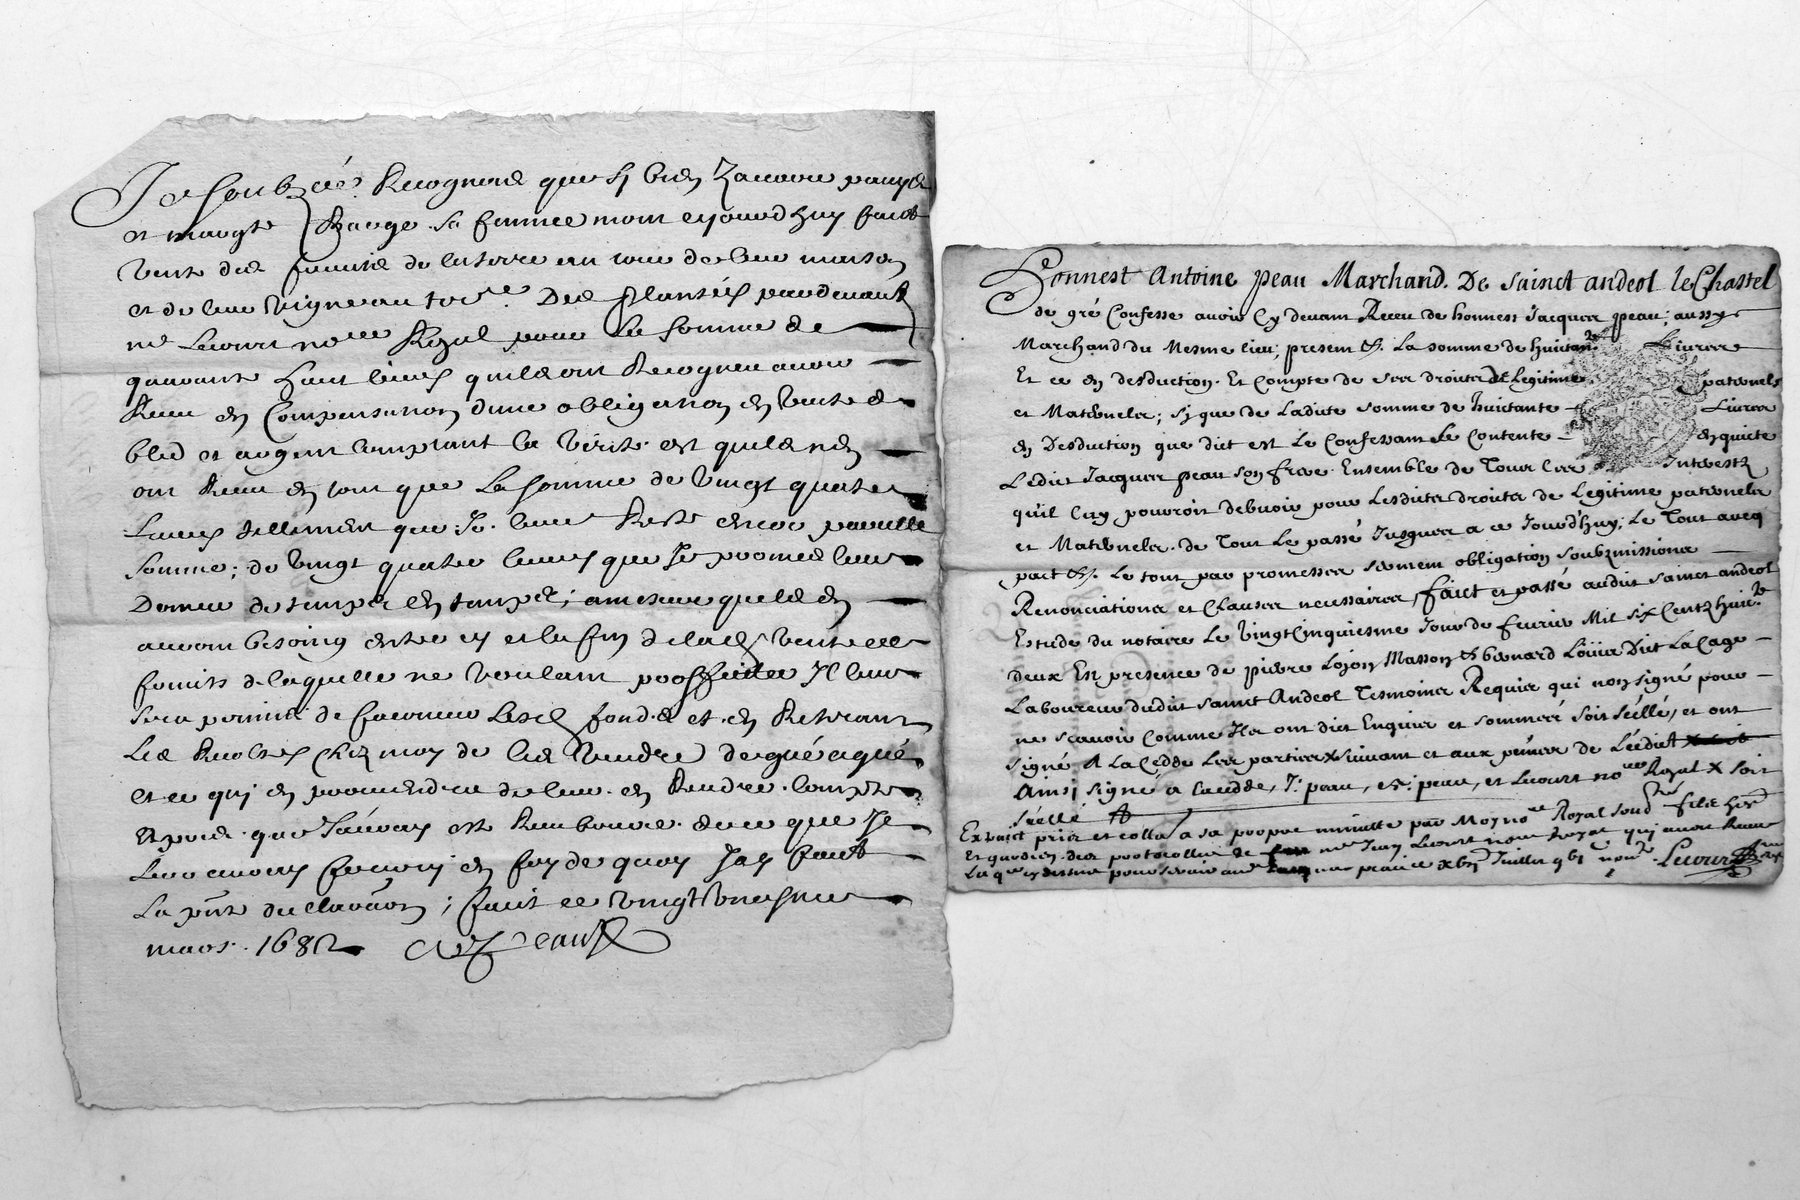 Je soubzné Recognois que sy bien Zacarie
et margte Rauge sa femme mont ejourdhuy fait
vente des fruits de la terre au tour de leur maison
et de leur vigne au tore. Des plantées pardevant
me Lecourt nore Royal pour la somme de
quarante huit livres quils ont Recogneu avoir
Receu en Compensation dune obligation en vente de
bled et argent comptant la vérité est quils nen
ont Receu en tout que La somme de vingt quatre
Livres tellement que Je leur Reste encor pareille
somme; de vingt quatre livres que Je promes leur
Donner de temps en temps; a mesure quils en
auront besoing entre cy et la fin de lad vente de
fruits de laquelle ne voulant proffiter Il leur
sera permis de fave Lesd fonds et en Retirant
Les Recoltes chez moy de les vendre de gré a gré
et ce qui en proviendra de leur en Rendre compte
apres que Jauray esté Remboursé de ce que Je
Leur auray fourny en foy de quoy Jay fait
La pnte declaraon; fait ce vingt uniesme
mars 1682
Honnest Antoine peau Marchand. De sainct andeol le Chastel
de gré Confesse avoir Cy devant Receu de honnest Jacques peau; aussy
Marchand du Mesme lieu; present &. La somme de huictante Livres
Et ce en desduction. Et Compte de ses droits de Legitime paternels
et Maternels; sy que de Ladite somme de huictante Livres
en Desduction que dict est Le Confessant Le Contente enquicte
Ledict Jacques peau son frere Ensemble de Tous les Interestz
qu'il luy pouvoit debvoir pour Lesdits droits de Legitime paternels
et Maternels. de Tout Le passé Jusques a ce Jourd'huy; Le Tout avec
pact &. Le tout par promesses serment obligation soubzmissions
Renonciations et Clauses necessaires, faict et passé audit sainct andeol
Estude du notaire Le vingtCinquiesme Jour de feurier Mil six Centz huict
deux En presence de pierre Loion Masson & bernard Dict La Cage
Laboureur dudit sainct Andeol Tesmoins Requis qui non signé pour
ne scavoir Comme Ils ont dict Enquis et sommés soit séellé, et ont
signé A La Cedde Les parties suivant et aux peines de Léedict
Ainsi signé a lacedde, J: peau, : peau, et Lecourt nore Royal soit
séellé
Extraict pris et colla a sa propre minutte par Moy nore Royal soud filz her
Et gardien des protocolles de me Jean Lecourt nore Royal qui avoit Receu
Lecourt